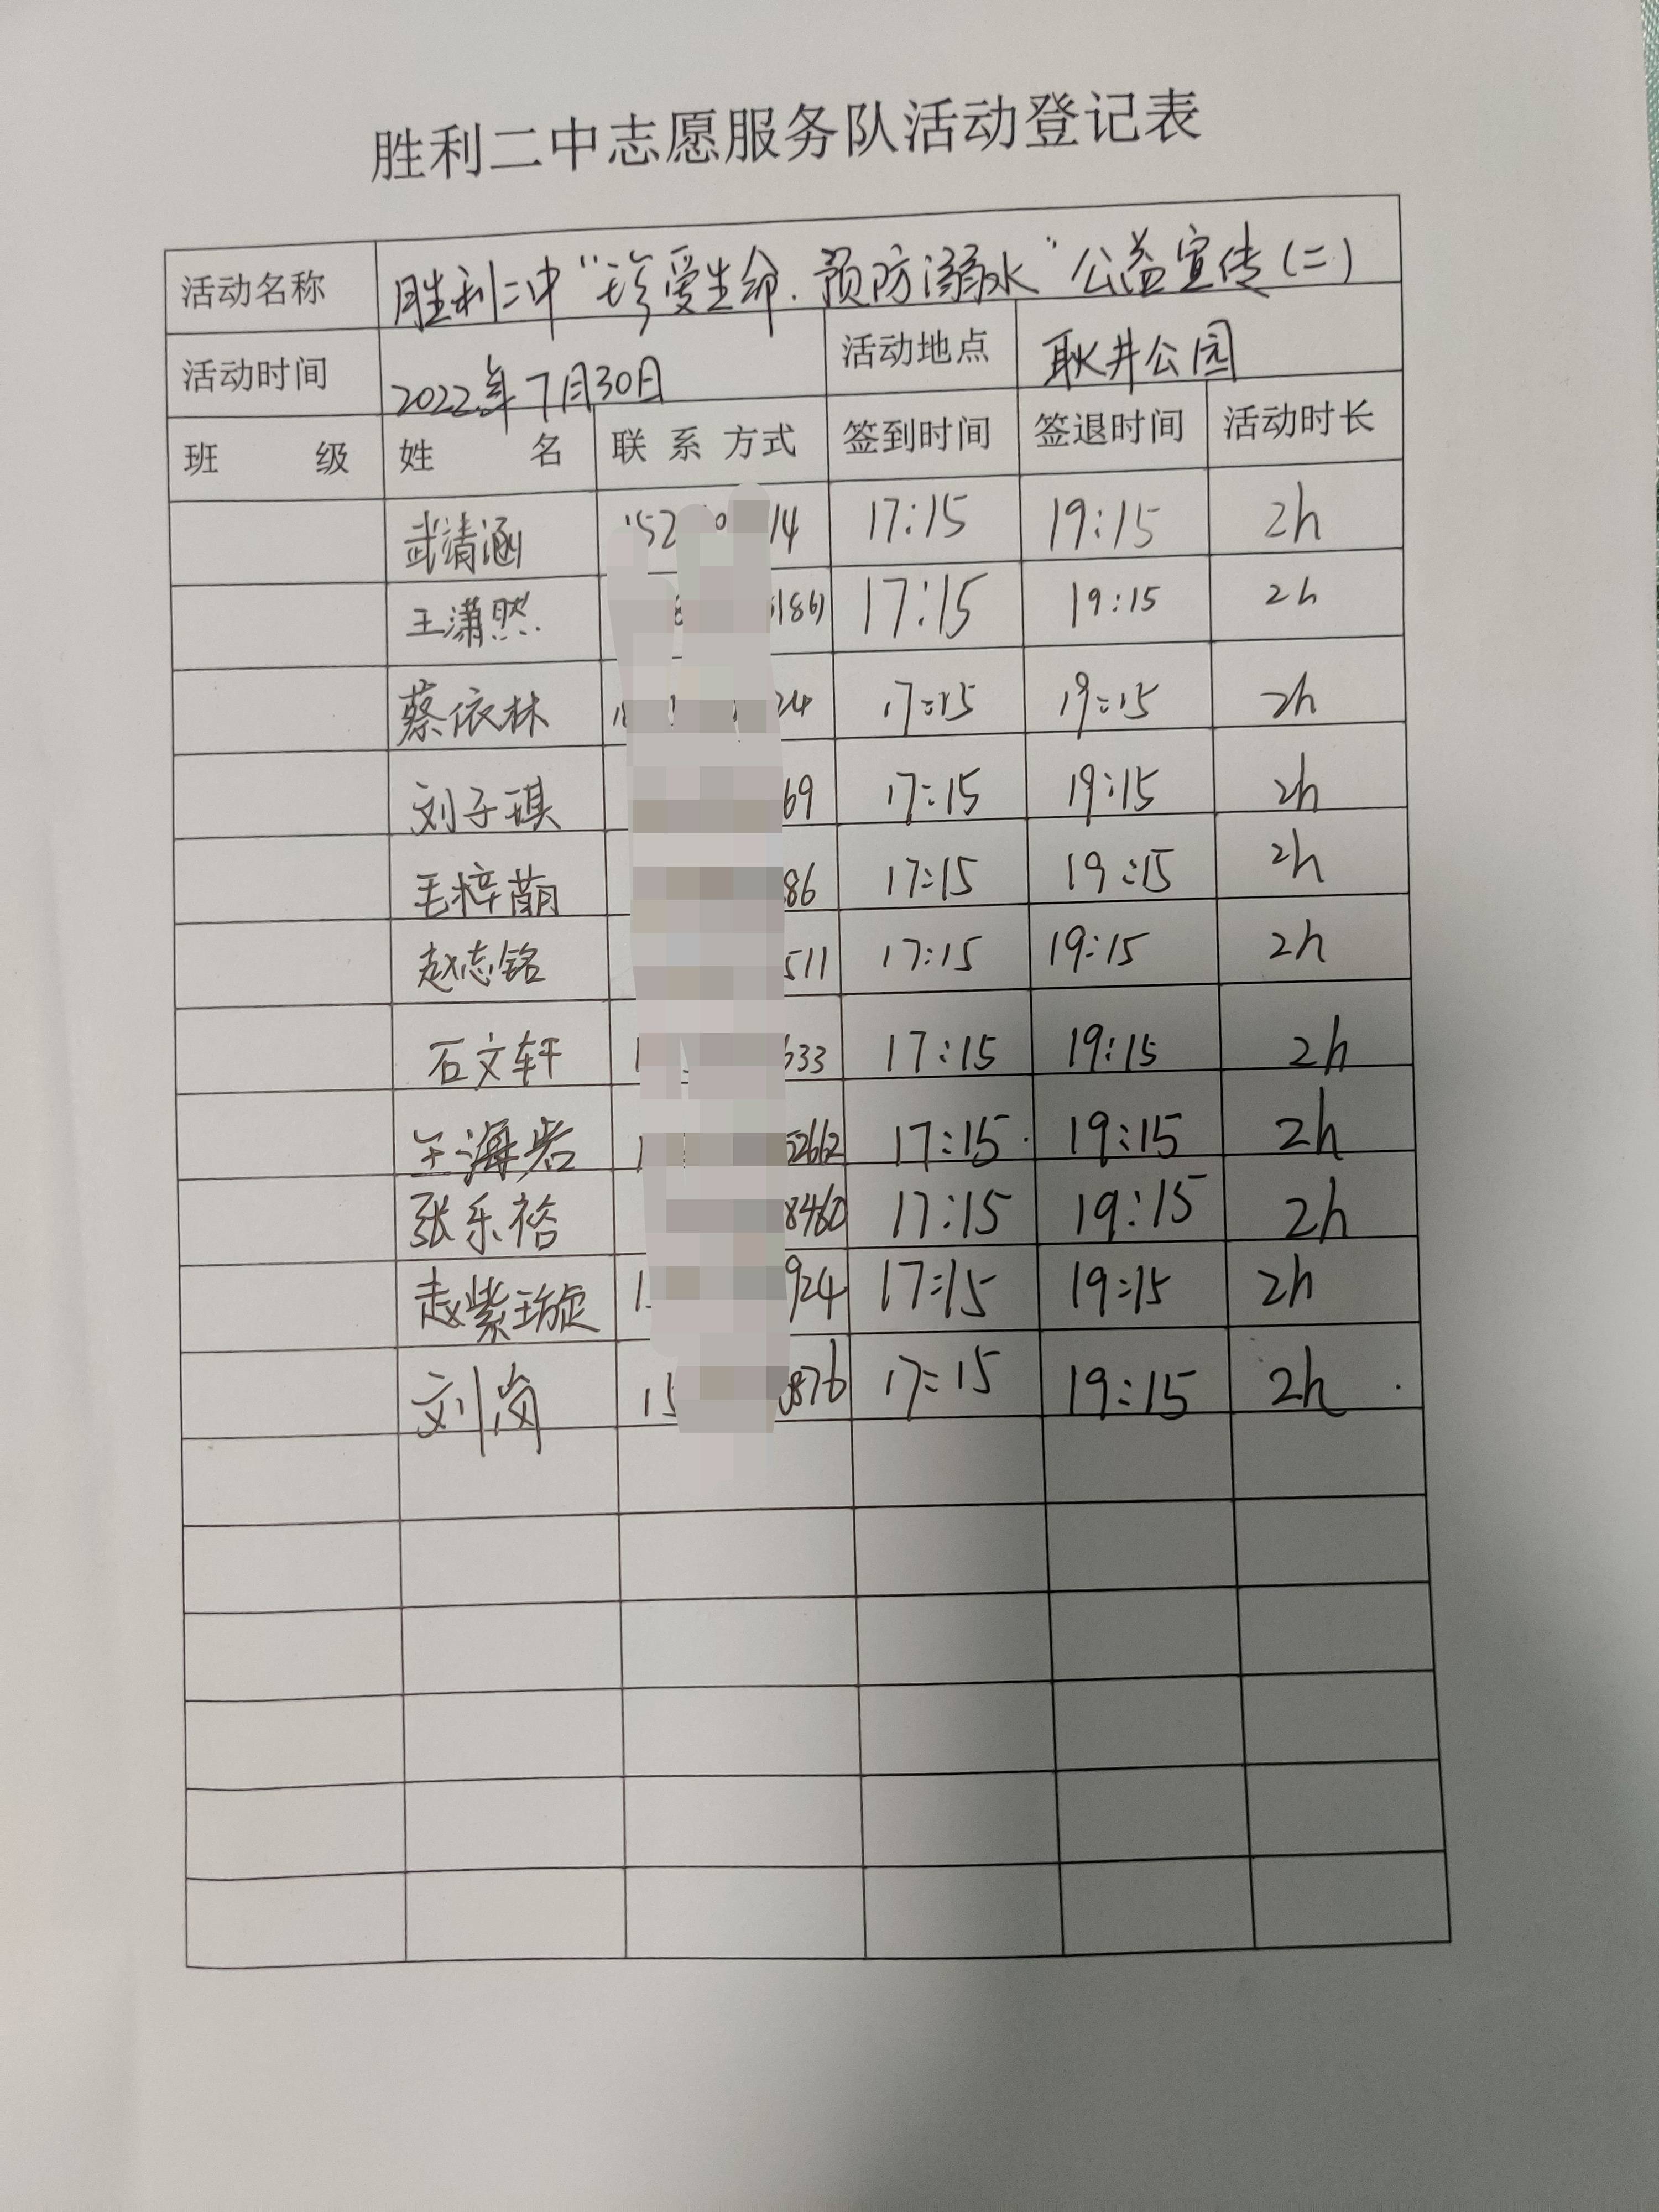 胜利二中志愿服务队活动登记表
活动名称 胜利二中“珍爱生命.预防溺水”公益宣传(二)
活动时间 2022年7月30日 活动地点 耿井公园
班 级 姓 名 联 系 方式 签到时间 签退时间 活动时长
武清涵 152 14 17:15 19:15 2h
王潇然 1861 17:15 19:15 2h
蔡依林 24 17:15 19:15 2h
刘子琪 69 17:15 19:15 2h
毛梓萌 86 17:15 19:15 2h
赵志铭 511 17:15 19:15 2h
石文轩 1 633 17:15 19:15 2h
王海岩 1 52662 17:15 19:15 2h
张乐裕 8460 17:15 19:15 2h
赵紫璇 1 924 17:15 19:15 2h
刘岗 15 876 17:15 19:15 2h